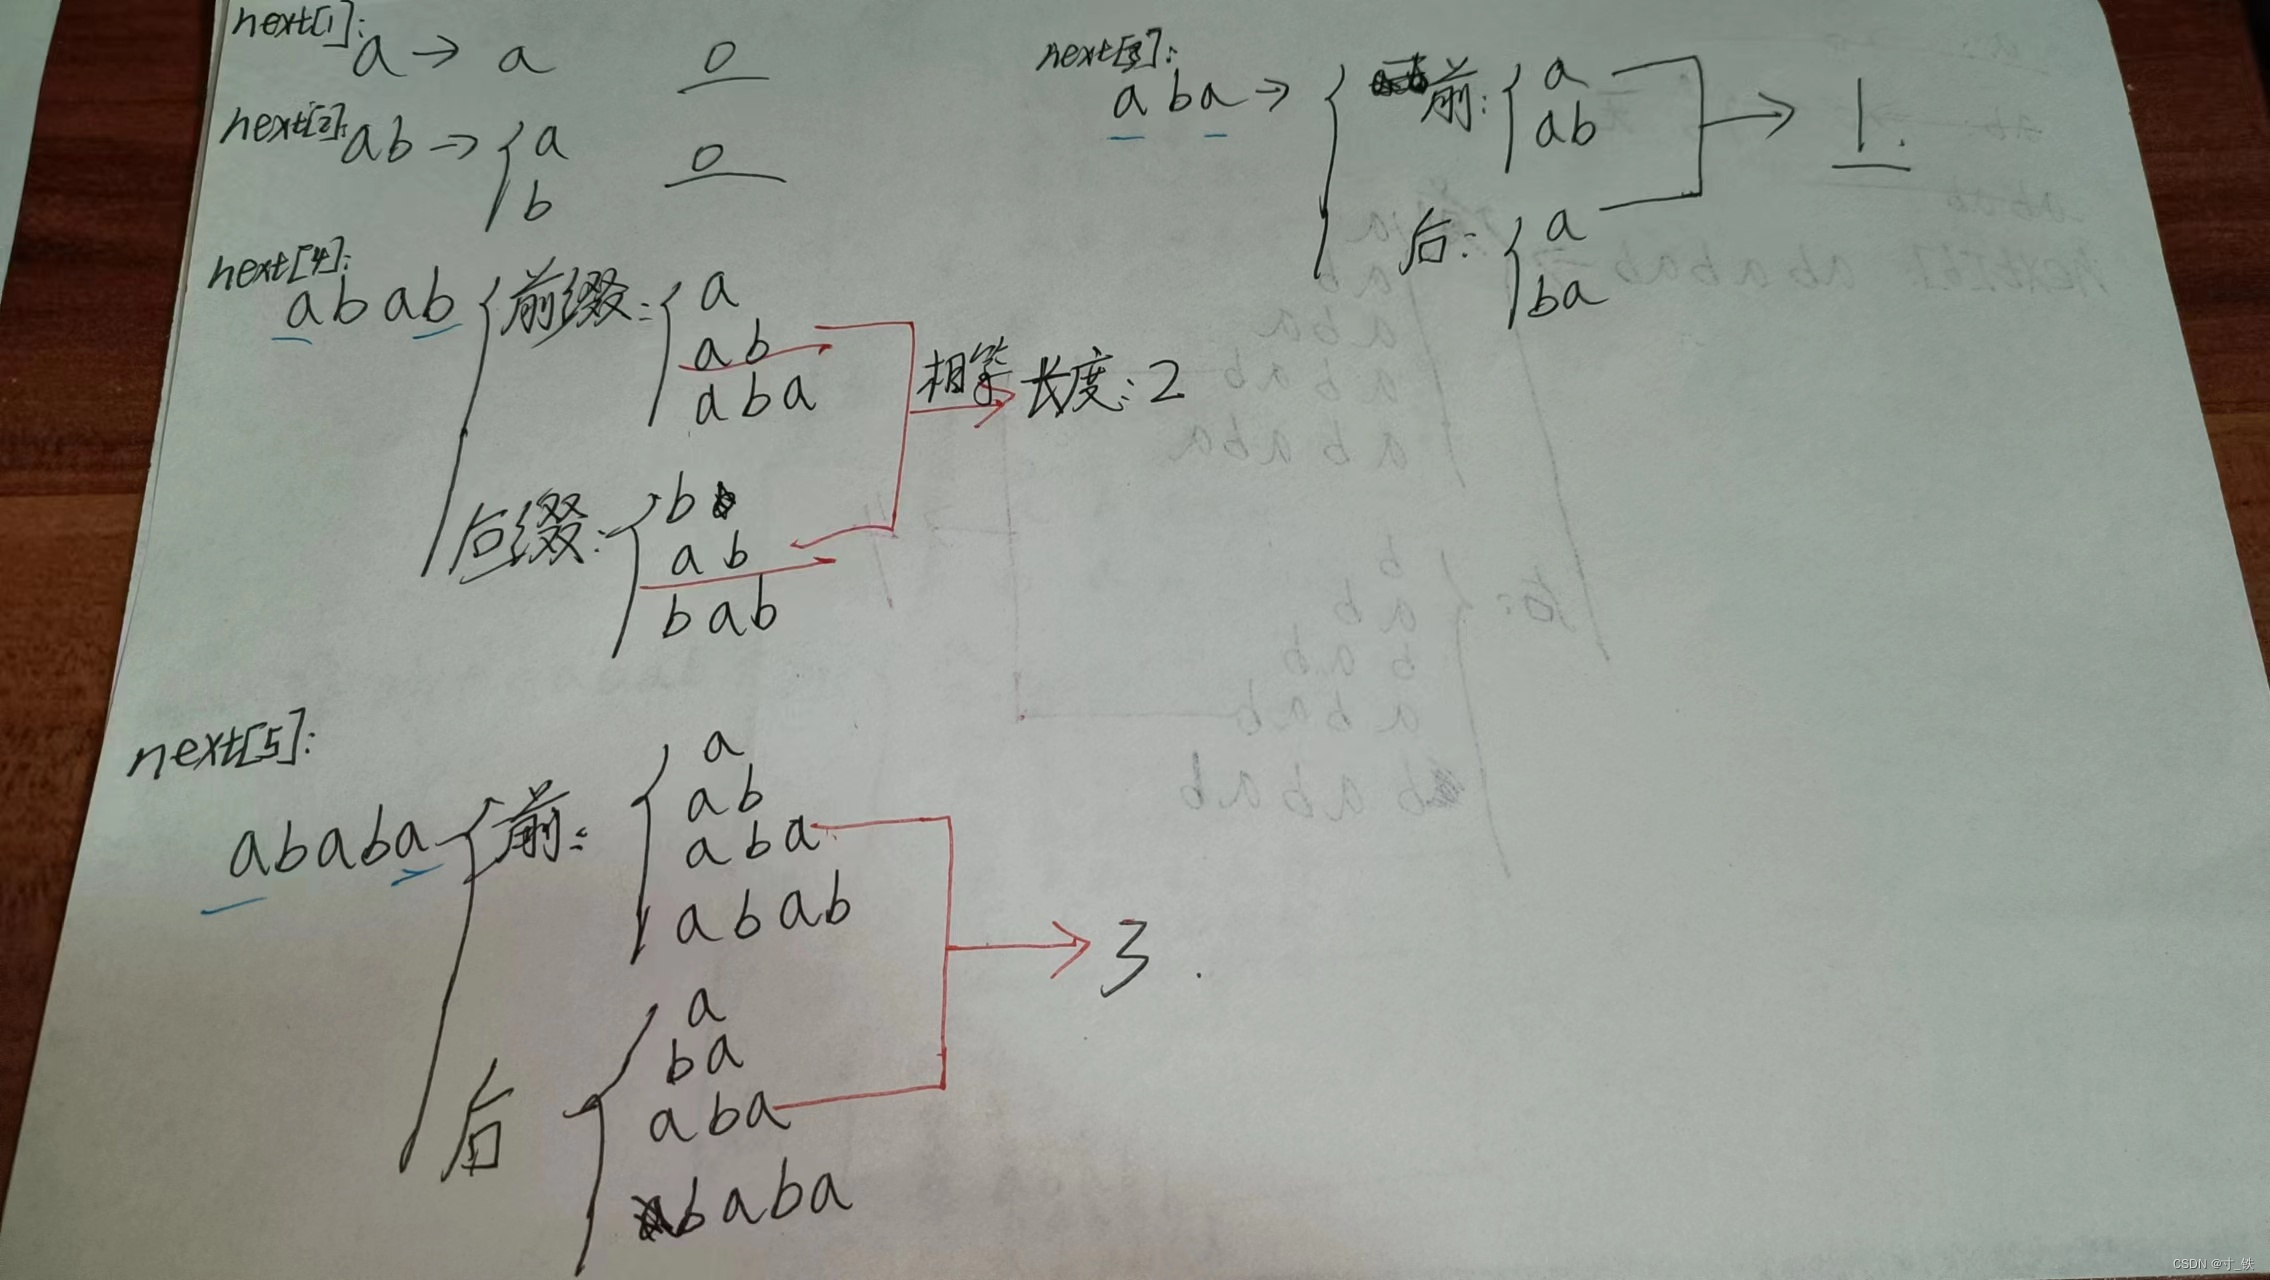 next[1]:
a → a 0
next[2]: ab → a 0
b
next[3]:
aba → 前: a
ab
→ 1.
后: a
ba
next[4]:
abab 前缀: a
ab
aba
相等 长度: 2
后缀: b
ab
bab
next[5]:
ababa 前: a
ab
aba
abab
→ 3.
后 a
ba
aba
baba
CSDN @寸_铁